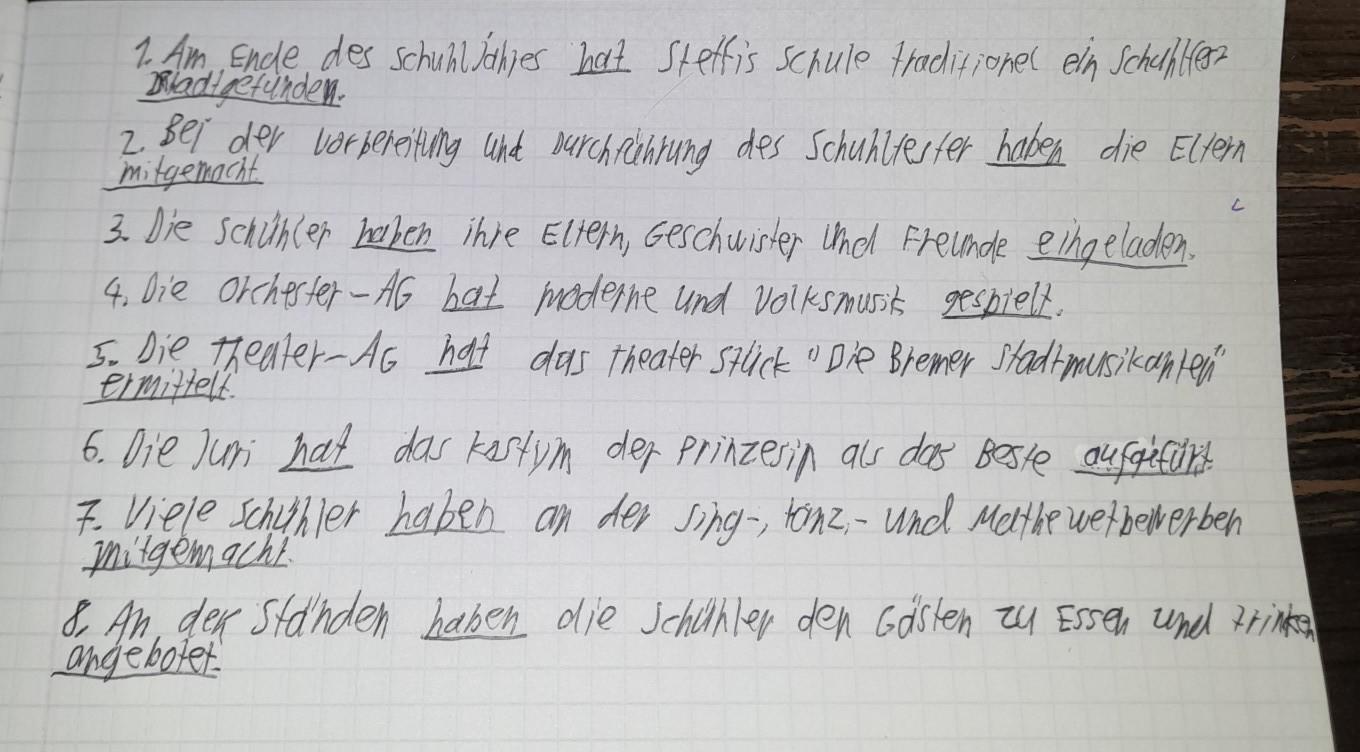 1. Am Ende des Schuhljahres hat Steffis Schule traditionel ein Schuhlfest
Stadtgefunden.
2. Bei der Vorbereitung und Durchführung des Schuhlfester haben die Eltern
mitgemacht.
3. Die Schühler haben ihre Eltern, Geschwister und Freunde eingeladen.
4. Die Orchester-AG hat moderne und Volksmusik gespielt.
5. Die Theater-AG hat das Theater Stück "Die Bremer Stadtmusikanten"
ermittelt.
6. Die Juri hat das Kostym der Prinzesin als das Beste aufgefürt
7. Viele Schühler haben an der Sing-, tanz,- und Mathe wetbewerben
mitgemacht.
8. An der Ständen haben die Schühler den Gästen zu Essen und trinken
angebotet.